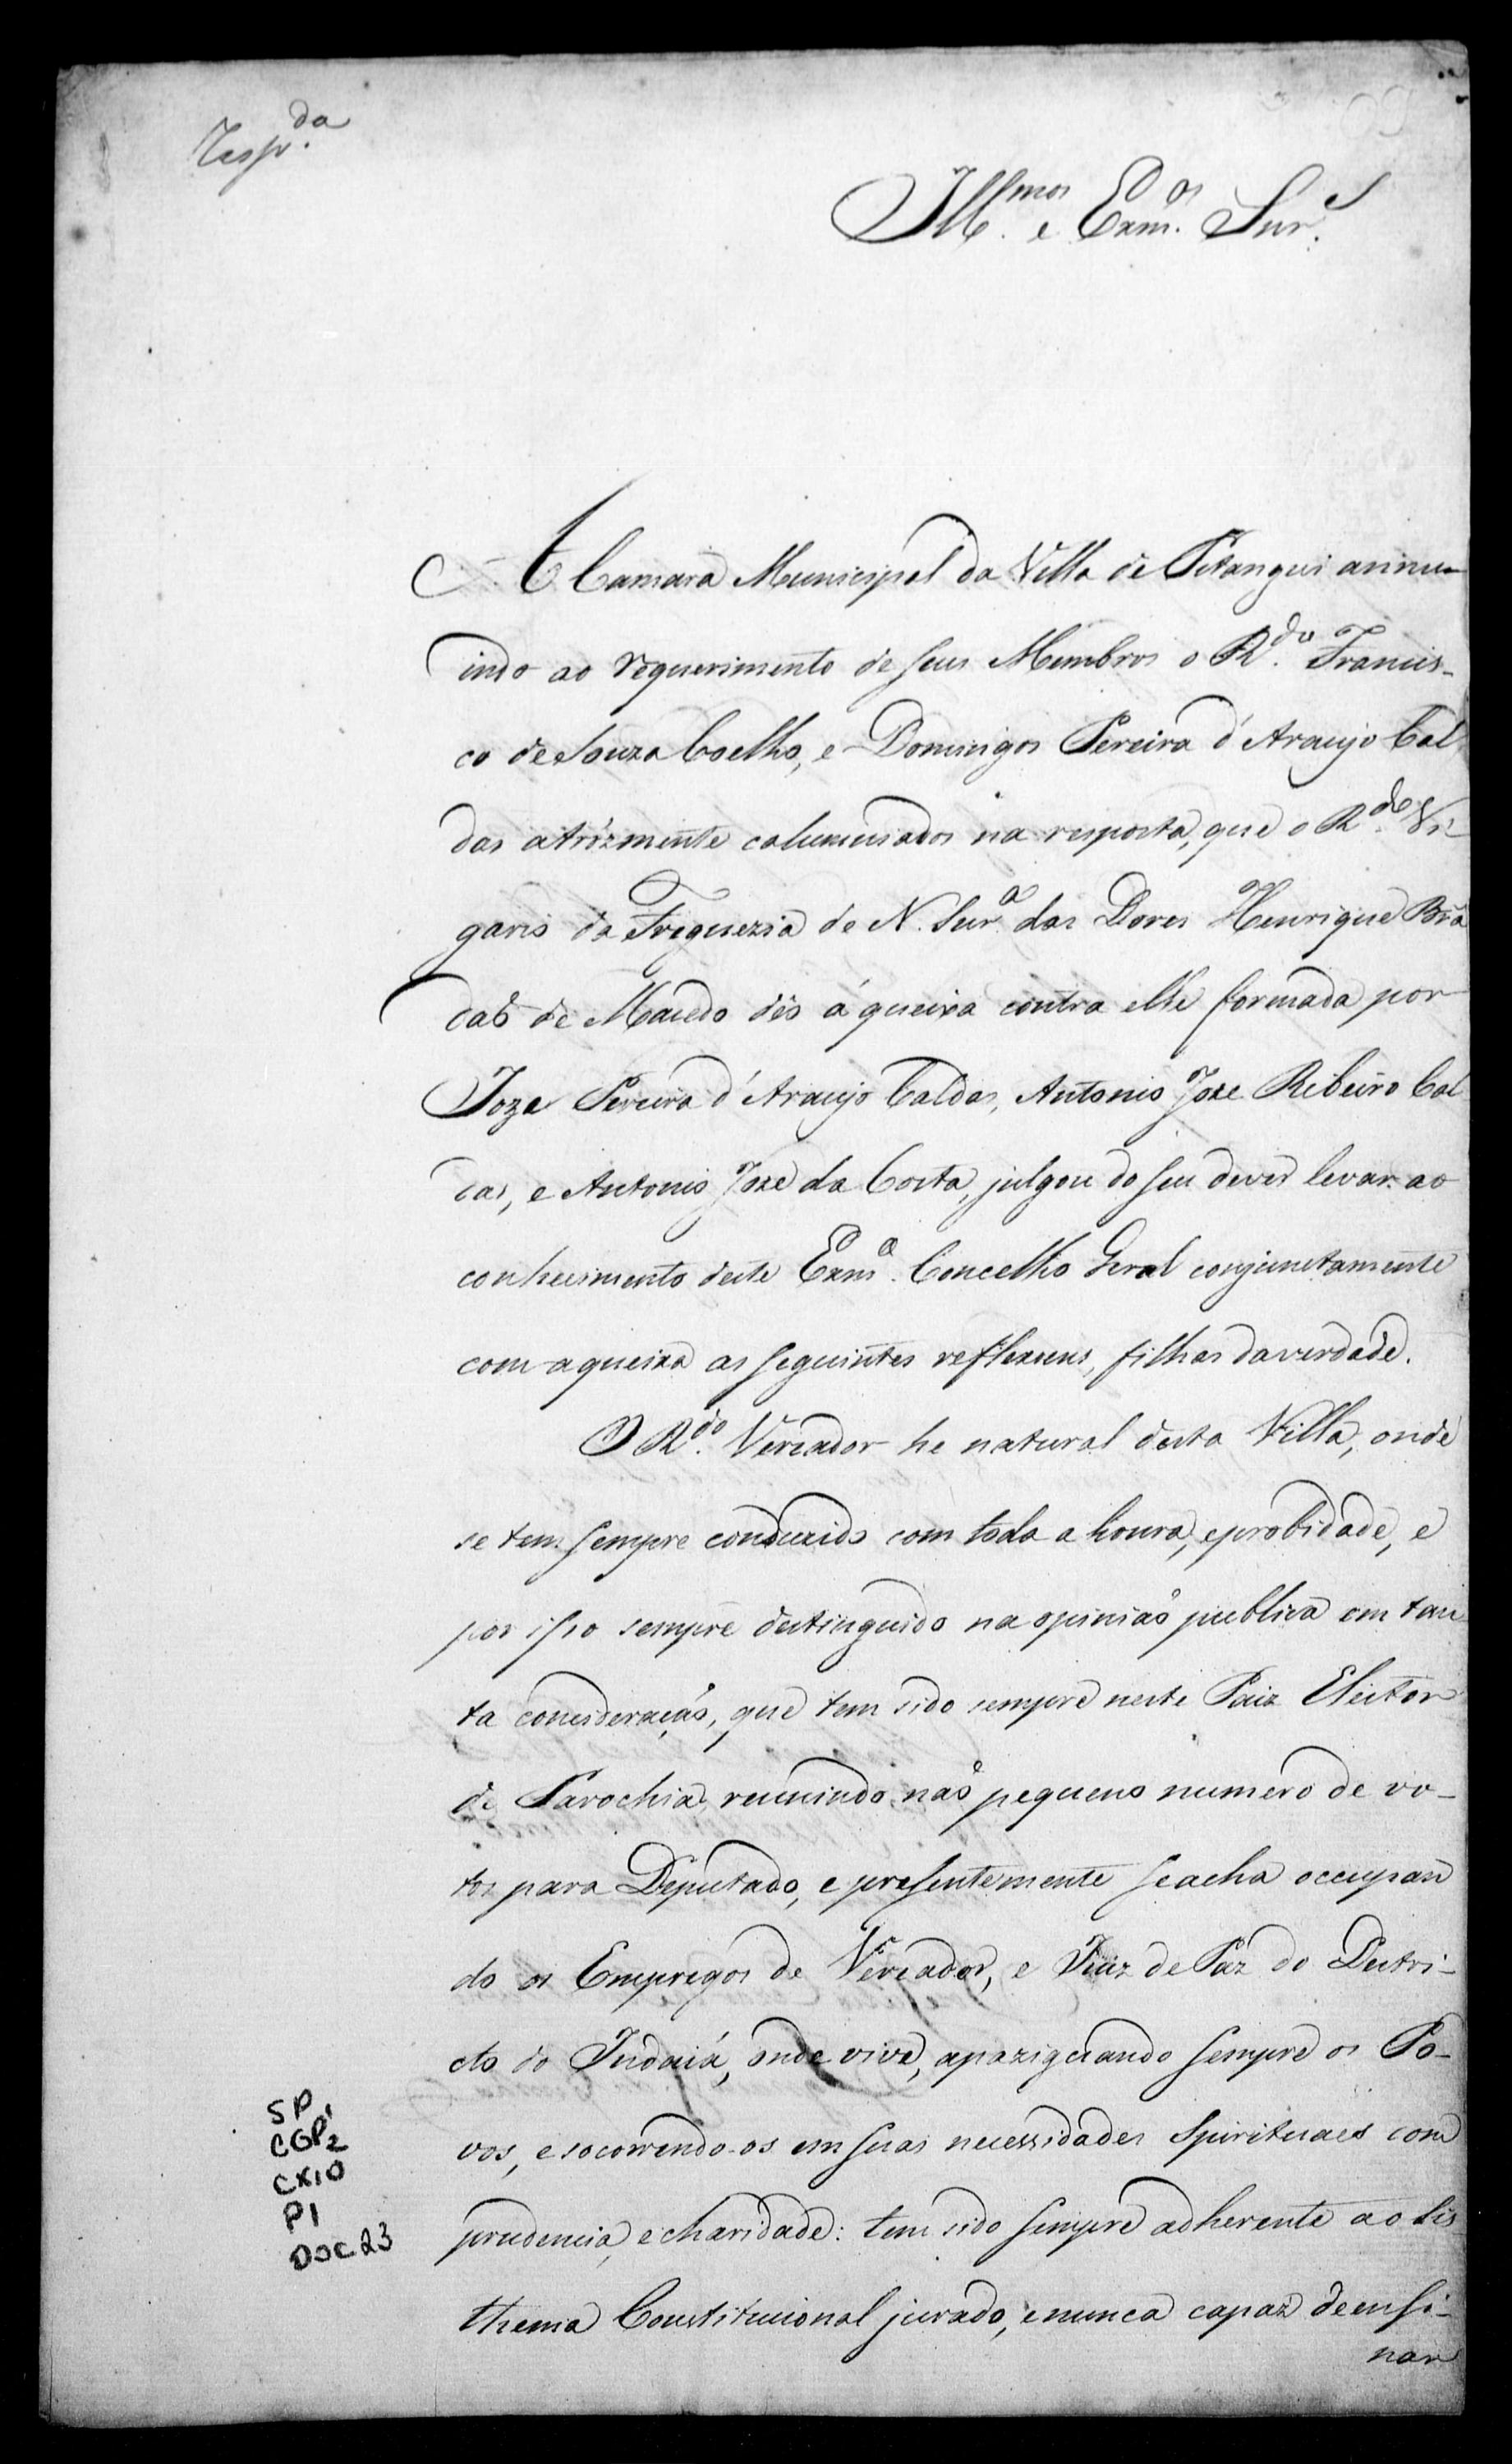 Resp.da
Ill.mos e Exm.os Snr.s
A Camara Municipal da Villa de Pitangui annu-
indo ao requerimento de seus Membros o R.do Francis-
co de Souza Coelho, e Domingos Pereira d'Araujo Cal
das atrózmente calumniados na resposta, que o R.do Vi-
gario da Freguezia de N. Snr.a das Dores Henrique Bra
daõ de Macedo dêo á queixa contra elle formada por
Joze Pereira d'Araujo Caldas, Antonio Joze Ribeiro Cal
das, e Antonio Joze da Costa, julgou do seu dever levar ao
conhecimento deste Exm.o Concelho Geral conjunctamente
com a queixa as seguintes reflexoens, filhas daverdade.
O R.do Vereador he natural desta Villa, onde
se tem sempre conduzido com toda a honra, eprobidade, e
por isso sempre destinguido na opiniaõ publica em tan
ta consideraçaõ, que tem sido sempre neste Paiz Eleitor
de Parochia, reunindo naõ pequeno numero de vo-
tos para Deputado, e presentemente seacha occupan
do os Empregos de Vereador, e Juiz de Paz do Destri-
cto do Indaiá, onde vive, apaziguando sempre os Po-
vos, e socorrendo-os em suas necessidades Spirituaes com
prudencia, echaridade: tem sido sempre adherente ao Sis
thema Constitucional jurado, enunca capaz deensi-
nar
SP
CGP1
2
CX10
P1
DOC23